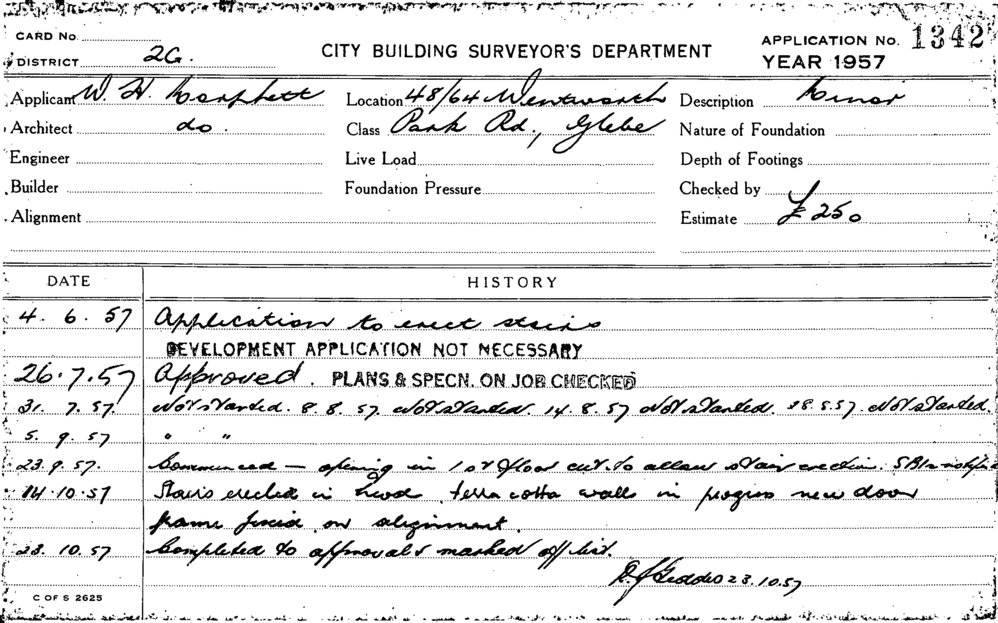 CARD No.
DISTRICT 2G.
CITY BUILDING SURVEYOR'S DEPARTMENT
APPLICATION No. 1342
YEAR 1957
Applicant W. H.
Location 48/64 Wentworth
Description Minor
Architect do.
Class Park Rd., Glebe
Nature of Foundation
Engineer
Live Load
Depth of Footings
Builder
Foundation Pressure
Checked by
Alignment
Estimate £ 250
DATE HISTORY
4. 6. 57 Application to erect stairs
DEVELOPMENT APPLICATION NOT NECESSARY
26.7.57 Approved. PLANS & SPECN. ON JOB CHECKED
31. 7. 57. Not started. 8. 8. 57. Not started. 14. 8. 57 Not started. 28.8.57. Not started.
5. 9. 57 " "
23.9.57. Commenced — opening in 1st floor cut to allow stair erection.
14.10.57 Stairs erected in terra cotta walls in progress new door
frame fixed on alignment.
23. 10. 57 Completed to approval & marked off list.
23.10.57
C OF S 2625